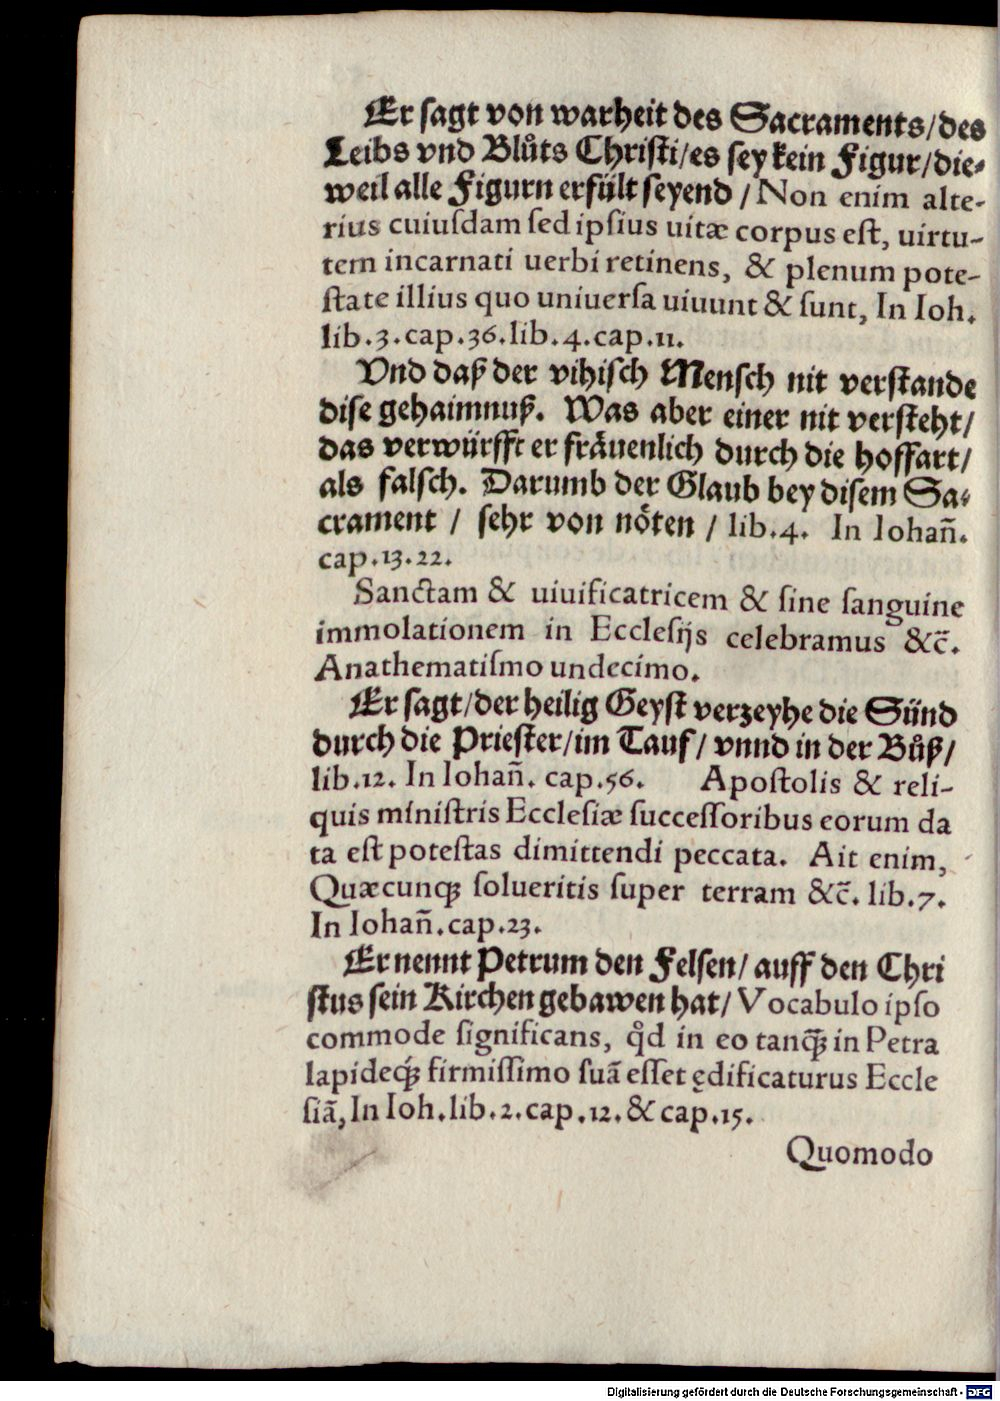 Er sagt von warheit des Sacraments/des
Leibs vnd Blůts Christi/es sey kein Figur/die-
weil alle Figurn erfült seyend / Non enim alte-
rius cuiuſdam ſed ipſius uitæ corpus eſt, uirtu-
tem incarnati uerbi retinens, & plenum pote-
ſtate illius quo uniuerſa uiuunt & ſunt, In Ioh.
lib.3.cap.36.lib.4.cap.11.
Vnd daß der vihiſch Menſch nit verſtande
diſe gehaimnuß. Was aber einer nit verſteht/
das verwürfft er fräuenlich durch die hoffart/
als falſch. Darumb der Glaub bey diſem Sa-
crament / ſehr von nöten / lib.4. In Iohañ.
cap.13.22.
Sanctam & uiuificatricem & ſine ſanguine
immolationem in Eccleſijs celebramus &c̃.
Anathematiſmo undecimo.
Er ſagt/der heilig Geyſt verzeyhe die Sünd
durch die Prieſter/im Tauf/ vnnd in der Bůß/
lib.12. In Iohañ. cap.56. Apoſtolis & reli-
quis miniſtris Eccleſiæ ſucceſſoribus eorum da
ta eſt poteſtas dimittendi peccata. Ait enim,
Quæcunqꝫ ſolueritis ſuper terram &c̃. lib.7.
In Iohañ.cap.23.
Er nennt Petrum den Felſen/ auff den Chri
ſtus ſein Kirchen gebawen hat/ Vocabulo ipſo
commode ſignificans, qd̊ in eo tanqꝫ̃ in Petra
lapideqꝫ́ firmiſſimo ſuã eſſet ędificaturus Eccle
ſiã, In Ioh.lib.2.cap.12.& cap.15.
Quomodo
Digitalisierung gefördert durch die Deutsche Forschungsgemeinschaft - DFG